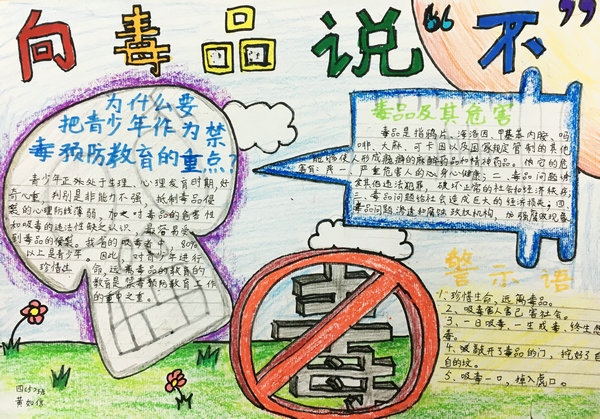 向毒品说“不”
为什么要
把青少年作为禁
毒预防教育的重点?
青少年正处于生理、心理发育时期,好
奇心重,判别是非能力不强,抵制毒品侵
袭的心理防线薄弱,加之对毒品的危害性
和吸毒的违法性缺乏认识,最容易受
到毒品的侵袭。我省的吸毒者中,80%
以上是青少年。因此,对青少年进行
珍惜生命,远离毒品的教育的
教育是禁毒预防教育工作
的重中之重。
毒品及其危害
毒品是指鸦片、海洛因、甲基苯丙胺、吗
啡、大麻、可卡因以及国家规定管制的其他
能够使人形成瘾癖的麻醉药品和精神药品。
严重危害人的心身心健康;二、毒品问题诱
发其他违法犯罪,破坏正常的社会和经济秩序;
三、毒品问题给社会造成巨大的经济损失;四
毒品问题渗透和腐蚀政权机构,加强腐败现象
毒
警示语
1、珍惜生命,远离毒品。
2、吸毒害人害己害社会。
3、一日吸毒,一生戒毒,终生想
毒。
4、吸毒敲开了毒品的门,挖好了自
自的坟。
5、吸毒一口,掉入虎口。